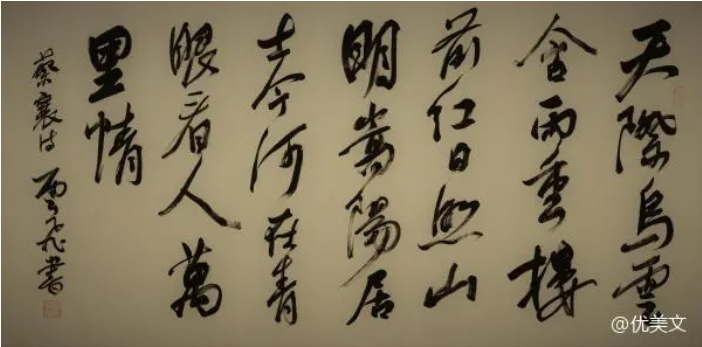 天際烏雲
含雨重樓
前紅日照山
明嵩陽居
士今何在青
眼看人萬
里情
蔡襄诗
书
@优美文